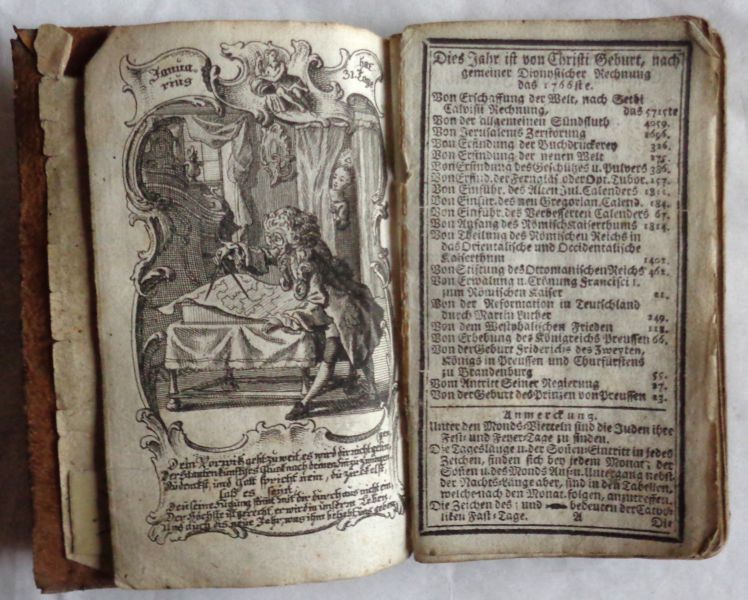 Janua-
rius
hat
31. Tage
Dein Vorwitz geht zu weit, es wird dir nicht
Der
und Gott spricht nein, du
Laß es seyn!
Der Höchste ist gerecht, er wird in unserm Leben,
Und auch dis neue Jahr, was ihm beliebt, uns geben.
Dies Jahr ist von Christi Geburt, nach
gemeiner Dionysischer Rechnung
das 1766ste.
Von Erschaffung der Welt, nach Sethi
Calvisii Rechnung, das 5715te
Von der allgemeinen Sündfluth 4059.
Von Jerusalems Zerstörung 1696.
Von Erfindung der Buchdruckerey 326.
Von Erfindung der neuen Welt 275.
Von Erfindung des Geschützes u. Pulvers 386.
Von Erfind. der Fernglås. oder Opt. Tubor. 157.
Von Einführ. des Alten Jul. Calenders 1811.
Von Einfür. des neu Gregorian. Calend. 184.
Von Einführ. des Verbesserten Calenders 67.
Von Anfang des Römisch. Kaiserthums 1814.
Von Theilung des Römischen Reichs in
das Orientalische und Occidentalische
Kaiserthum 1402.
Von Stiftung des Ottomanischen Reichs 462.
Von Erwålung u. Crönung Francisci I.
zum Römischen Kaiser 21.
Von der Reformation in Teutschland
durch Martin Luther 249.
Von dem Westphälischen Frieden 118.
Von Erhebung des Königreichs Preussen 66.
Von der Geburt Friderichs des Zweyten,
Königs in Preussen und Churfürstens
zu Brandenburg 55.
Vom Antritt Seiner Regierung 27.
Von der Geburt des Prinzen von Preussen 23.
Anmerckung.
Unter den Monds-Vierteln sind die Juden ihre
Fest- und Feyer-Tage zu finden.
Die Tageslänge u. der Soñen-Eintritt in jedes
Zeichen, finden sich bey jedem Monat; der
Soñen u. des Monds Auf- u. Untergang nebst
der Nachts-Länge aber, sind in den Tabellen,
welche nach den Monat. folgen, anzutreffen.
Die Zeichen des ; und bedeuten der Catho-
liken Fast-Tage. A Die